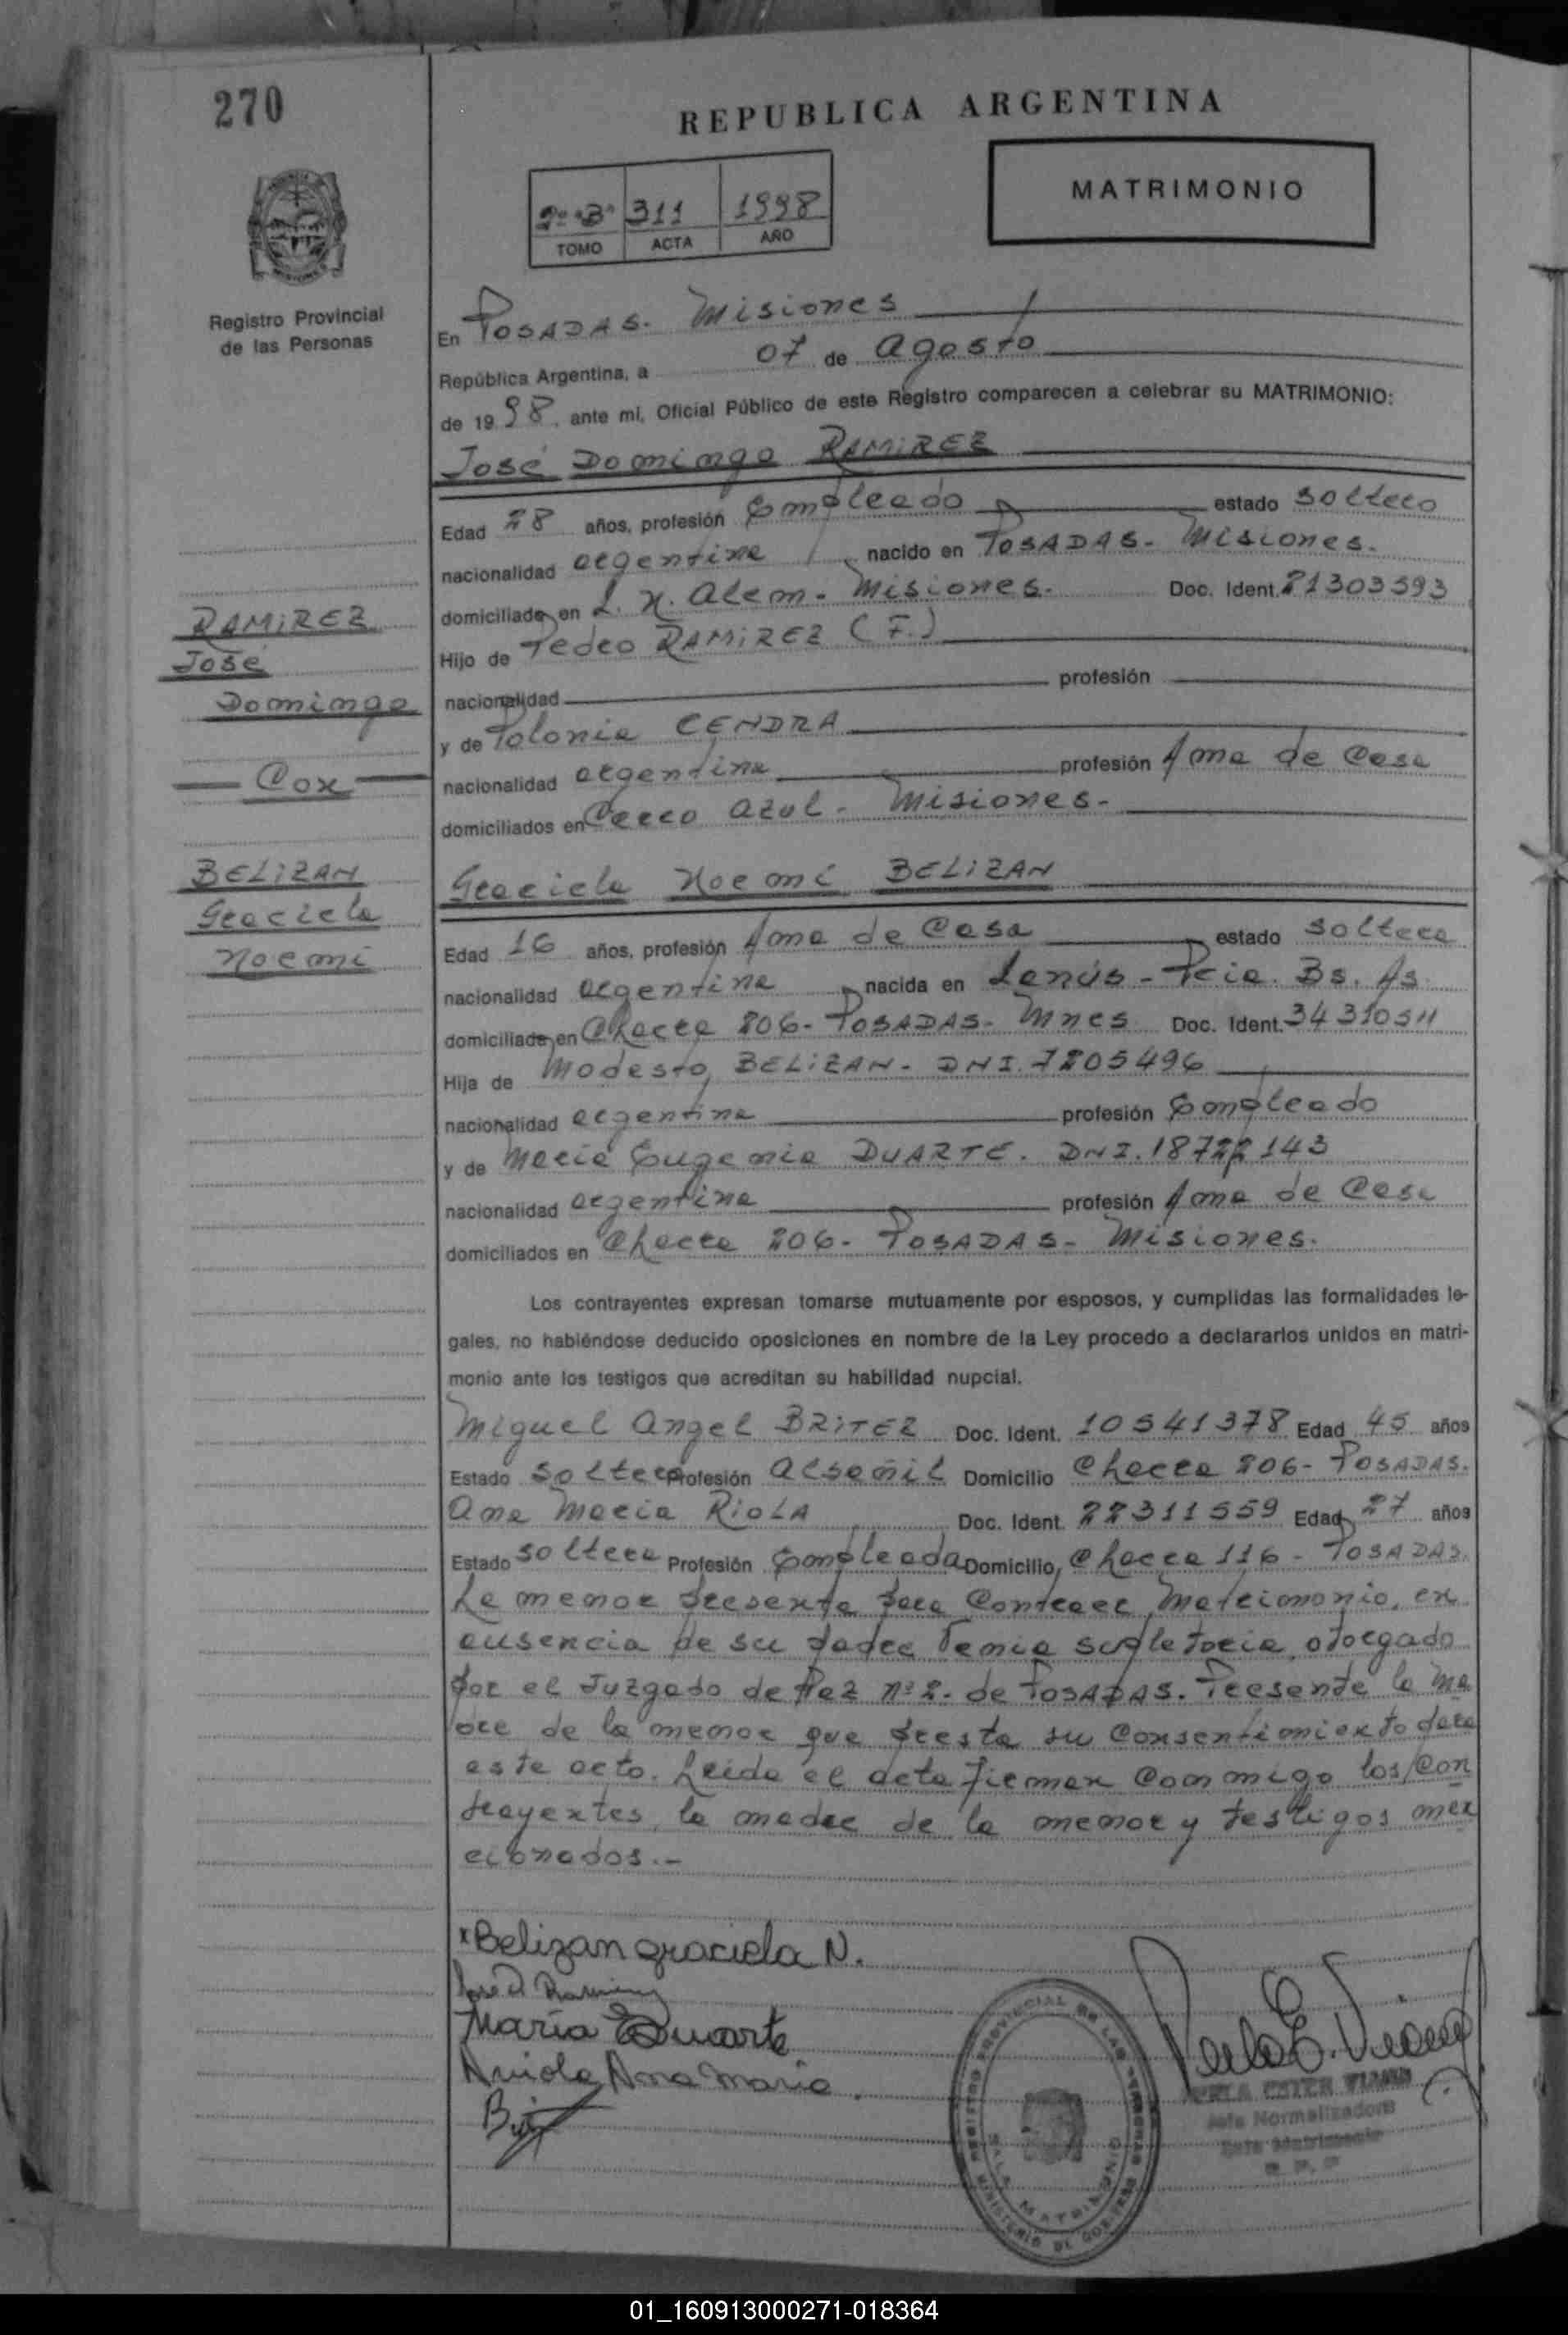 270
REPUBLICA ARGENTINA
MATRIMONIO
2º "B" 311 1998
TOMO ACTA AÑO
Registro Provincial
de las Personas
En POSADAS. Misiones
República Argentina, a 07 de Agosto
de 19 98, ante mí, Oficial Público de este Registro comparecen a celebrar su MATRIMONIO:
José Domingo RAMIREZ
Edad 28 años, profesión Empleado estado soltero
nacionalidad argentina nacido en POSADAS - Misiones.
domiciliado en L. N. Alem - Misiones. Doc. Ident. 21303593
Hijo de Pedro RAMIREZ (F.)
nacionalidad profesión
y de Polonia CENDRA
nacionalidad argentina profesión Ama de Casa
domiciliados en Cerro Azul - Misiones-
RAMIREZ
José
Domingo
Con
BELIZAN
Graciela
Noemi
Graciela Noemi BELIZAN
Edad 16 años, profesión Ama de Casa estado soltera
nacionalidad argentina nacida en Lanús - Pcia. Bs. As.
domiciliada en Chacra 206- POSADAS- Mnes Doc. Ident. 34310511
Hija de Modesto BELIZAN - DNI. 7805496
nacionalidad argentina profesión Empleado
y de María Eugenia DUARTE. DNI. 18722143
nacionalidad argentina profesión Ama de Casa
domiciliados en Chacra 206- POSADAS- Misiones.
Los contrayentes expresan tomarse mutuamente por esposos, y cumplidas las formalidades le-
gales, no habiéndose deducido oposiciones en nombre de la Ley procedo a declararlos unidos en matri-
monio ante los testigos que acreditan su habilidad nupcial.
Miguel Angel BRITEZ Doc. Ident. 10541378 Edad 45 años
Estado soltero Profesión Albañil Domicilio Chacra 206- POSADAS.
Ana Maria RIOLA Doc. Ident. 22311559 Edad 27 años
Estado soltera Profesión Empleada Domicilio Chacra 116 - POSADAS.
La menor presenta para Contraer Matrimonio, en
ausencia de su padre Venia supletoria, otorgado
por el Juzgado de Paz nº 2. de POSADAS. Presente la ma
dre de la menor que presta su Consentimiento para
este acto. Leida el acta firman Conmigo los Con
trayentes, la madre de la menor y testigos men
cionados.-
x Belizan graciela N.
José D Ramirez
María E Duarte
Ana Maria
REGISTRO PROVINCIAL DE LAS PERSONAS
SALA MATRIMONIO
MINISTERIO DE GOBIERNO
Jefa Normalizadora
Sala Matrimonio
01_160913000271-018364